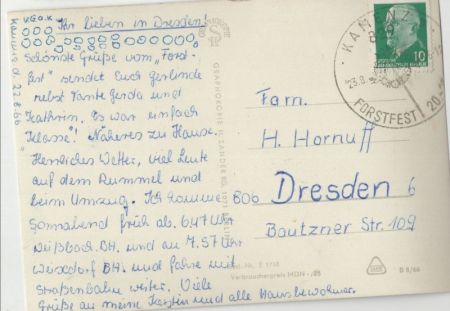 Ihr Lieben in Dresden!
Kamenz d. 22.8.66
Schönste Grüße vom "Forst-
fest" sendet Euch Gerlinde
nebst Tante Gerda und
Kathrin. Es war einfach
"Klasse"! Näheres zu Hause.
Herrliches Wetter, viel Leute
auf dem Rummel und
beim Umzug. Ich komme
Sonnabend früh ab. 6.47 Uhr
Weißbach BH. und an 7.57 Uhr
Weixdorf BH. und fahre mit
Straßenbahn weiter. Viele
Grüße an meine Kerstin und alle Hausbewohner.
KAMENZ
FORSTFEST
10
Fam.
H. Hornuff
806 Dresden 6
Bautzner Str. 109
Verbraucherpreis MDN -,25
D 8/66